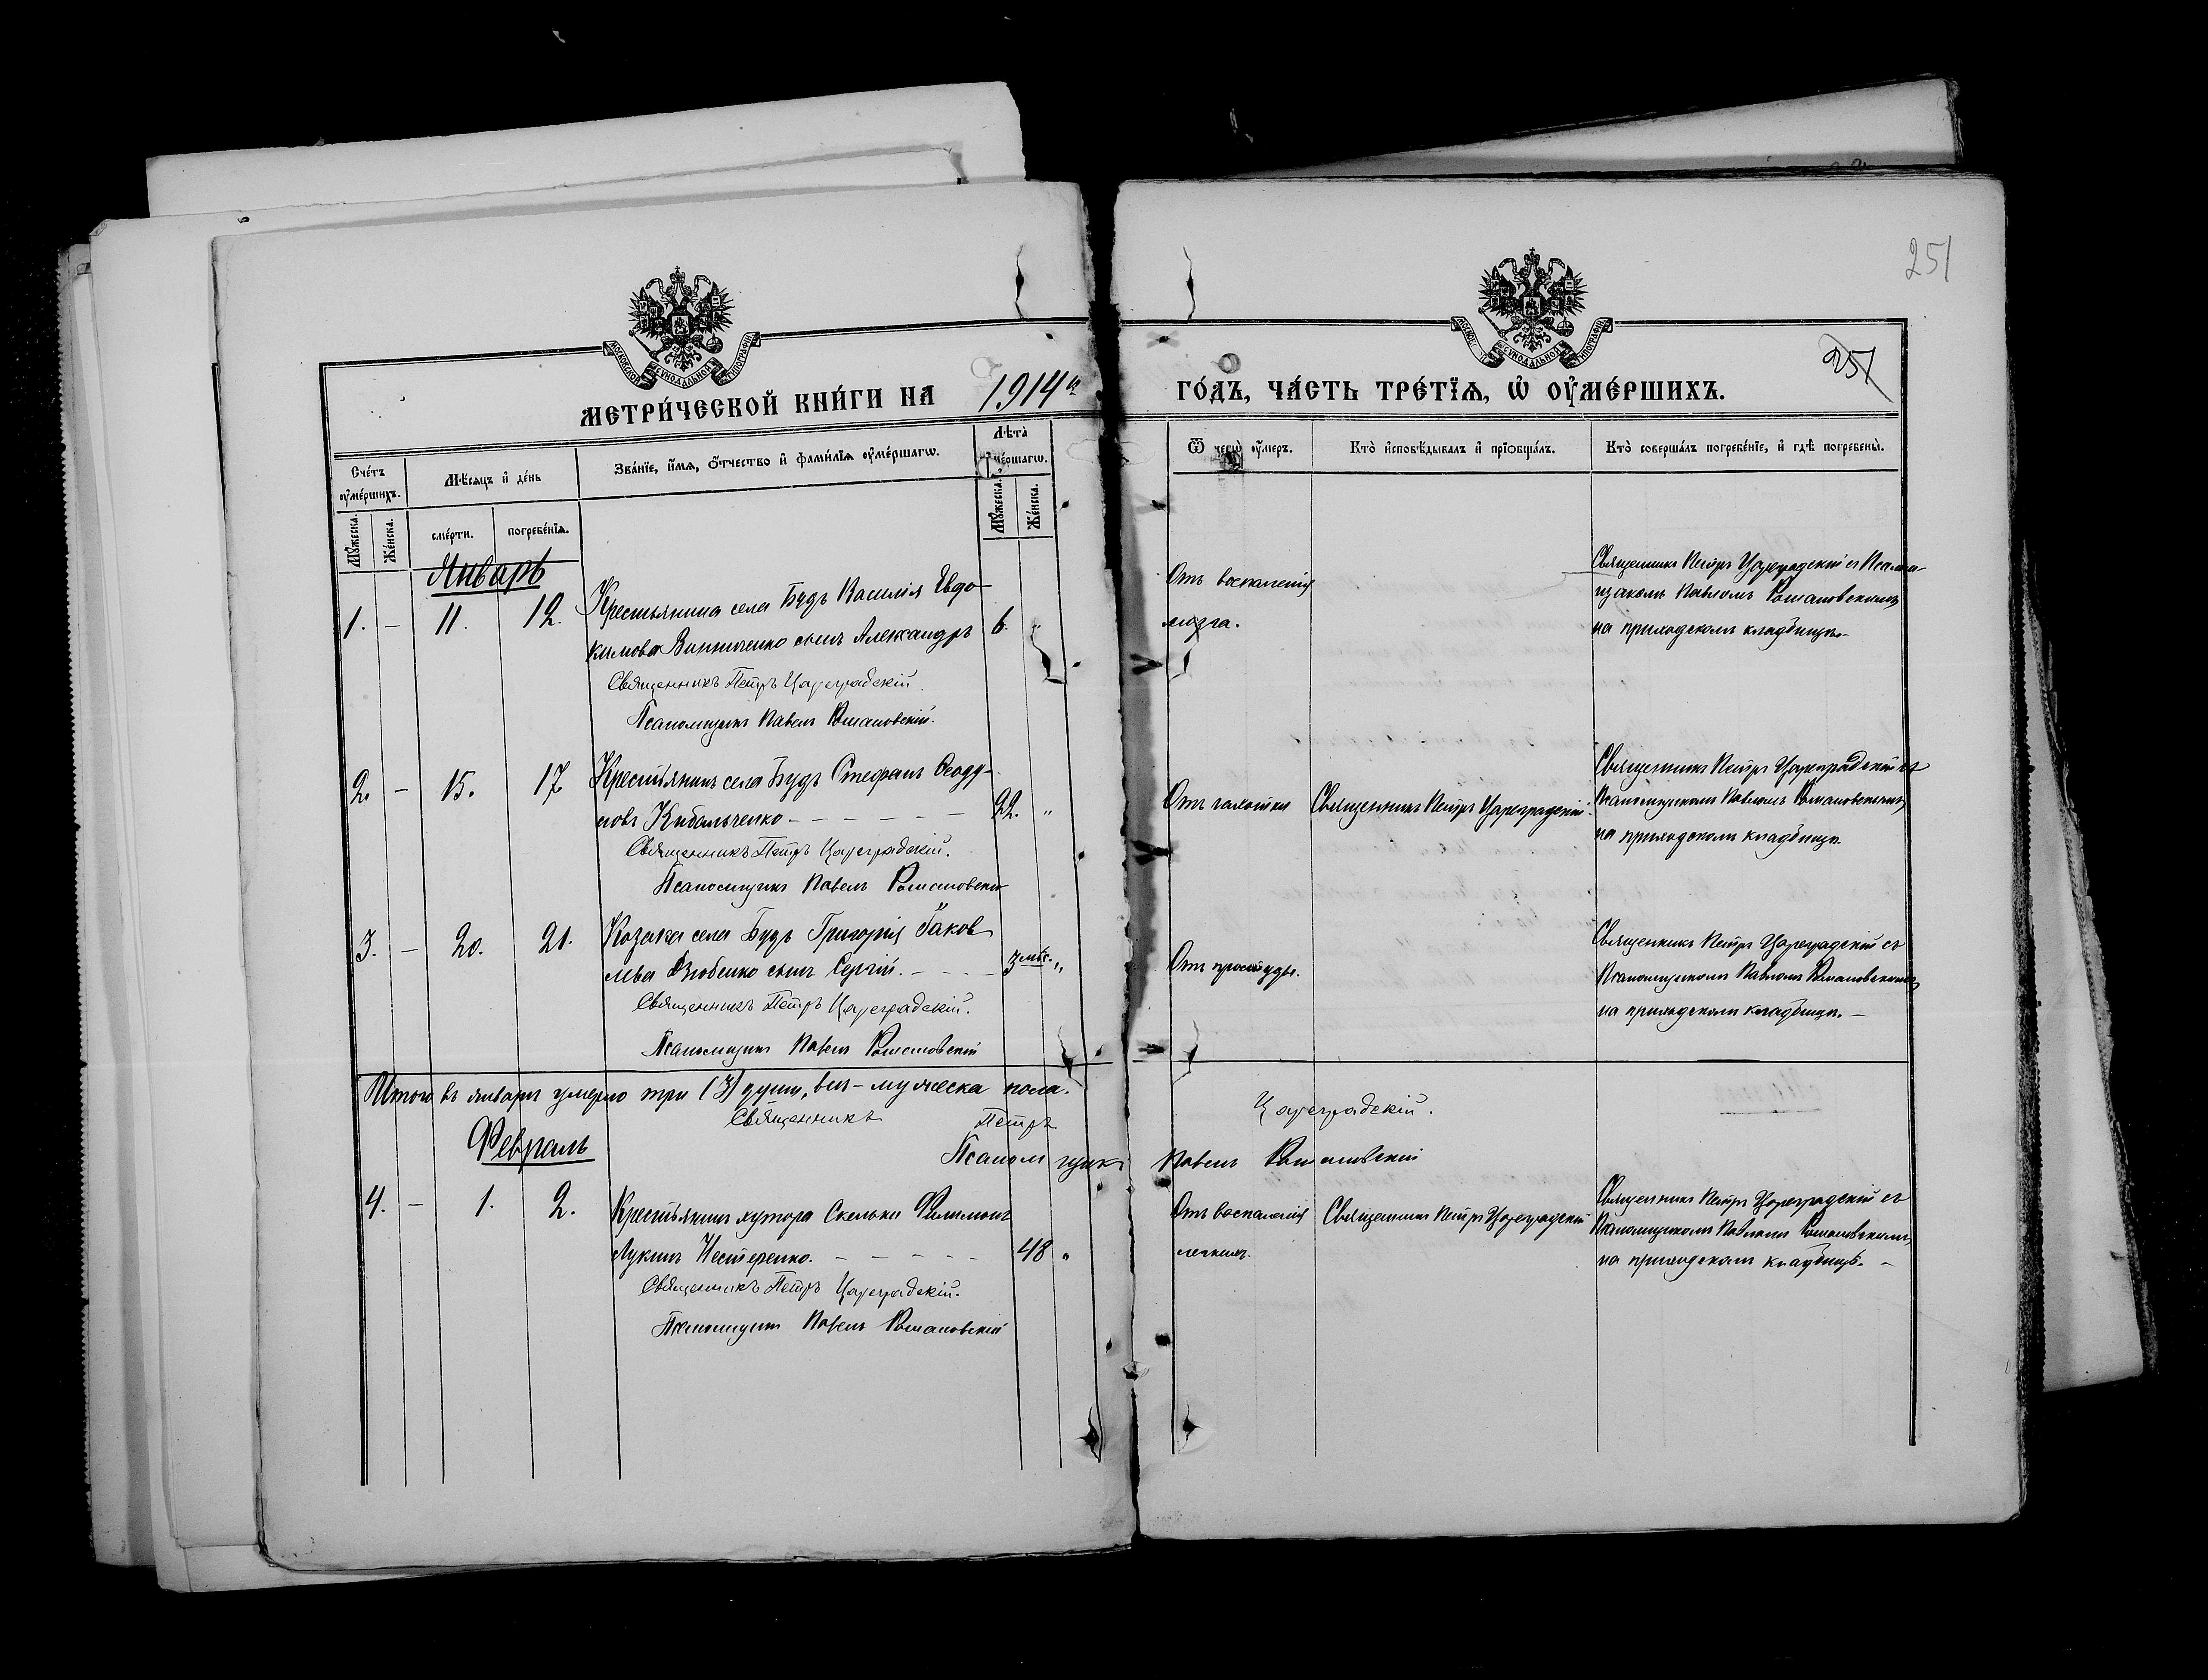 251
МОСКОВСКОЙ СУНОДАЛЬНОЙ ТИПОГРАФІИ
МОСКОВСКОЙ СУНОДАЛЬНОЙ ТИПОГРАФІИ
251
МЕТРИ́ЧЕСКОЙ КНИ́ГИ НА 1914й ГО́ДЪ, ЧА́СТЬ ТРЕ́ТЇѦ, Ѡ҆ ОУ҆МЕ́РШИХЪ.
Сче́тъ оу҆ме́ршихъ.
Мѣ́сѧцъ и҆ де́нь
Зва́нїе, и҆́мѧ, ѻ҆́тчество и҆ фами́лїѧ оу҆ме́ршагѡ.
Лѣ́та оу҆ме́ршагѡ.
Ѿ чегѡ̀ оу҆́меръ.
Кто̀ и҆сповѣ́дывалъ и҆ прїѡбща́лъ.
Кто̀ соверша́лъ погребе́нїе, и҆ гдѣ̀ погребены̀.
Мꙋ́жеска.
Же́нска.
сме́рти.
погребе́нїѧ.
Мꙋ́жеска.
Же́нска.
Январь
1. – 11. 12. Крестьянина села Будъ Василія Евдо-
кимова Винниченко сынъ Александръ 6. "
Священникъ Петръ Цареградскій.
Псаломщикъ Павелъ Романовскій.
Отъ воспаленія
мозга.
Священникъ Петръ Цареградскій съ Псалом-
щикомъ Павломъ Романовскимъ
на приходскомъ кладбищѣ.-
2. – 15. 17 Крестьянинъ села Будъ Стефанъ Ѳеоду-
ловъ Кибальченко – – – – – – 22. "
Священникъ Петръ Цареградскій.
Псаломщикъ Павелъ Романовскій
Отъ чахотки
Священникъ Петръ Цареградскій.
Священникъ Петръ Цареградскій съ
Псаломщикомъ Павломъ Романовскимъ
на приходскомъ кладбищѣ.
3. – 20. 21. Козака села Будъ Григорія Яков
лева сынъ Сергій. – – – – 3 мѣс. "
Священникъ Петръ Цареградскій.
Псаломщикъ Павелъ Романовскій
Отъ простуды.
Священникъ Петръ Цареградскій съ
Псаломщикомъ Павломъ Романовскимъ
на приходскомъ кладбищѣ. –
Итого въ январѣ умерло три (3) души, всѣ – мужеска пола.
Священникъ Петръ Цареградскій.
Псаломщикъ Павелъ Романовскій
Февраль
4. – 1. 2. Крестьянинъ хутора Скельки Филимонъ
Лукинъ Нестеренко. – – – – – 48 "
Священникъ Петръ Цареградскій.
Псаломщикъ Павелъ Романовскій
Отъ воспаленія
легкихъ.
Священникъ Петръ Цареградскій
Священникъ Петръ Цареградскій съ
Псаломщикомъ Павломъ Романовскимъ
на приходскомъ кладбищѣ. –